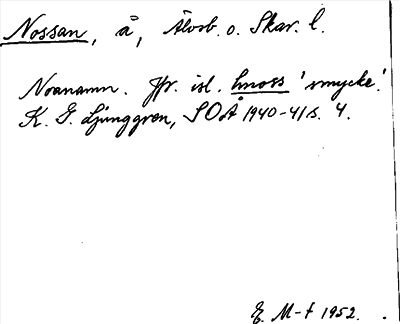 Nossan, å, Älvsb. o. Skar. l.
Noanamn. Jfr. isl. hnoss 'smycke'.
K. G. Ljunggren, SOÅ 1940-41 s. 4.
E. M-t 1952.